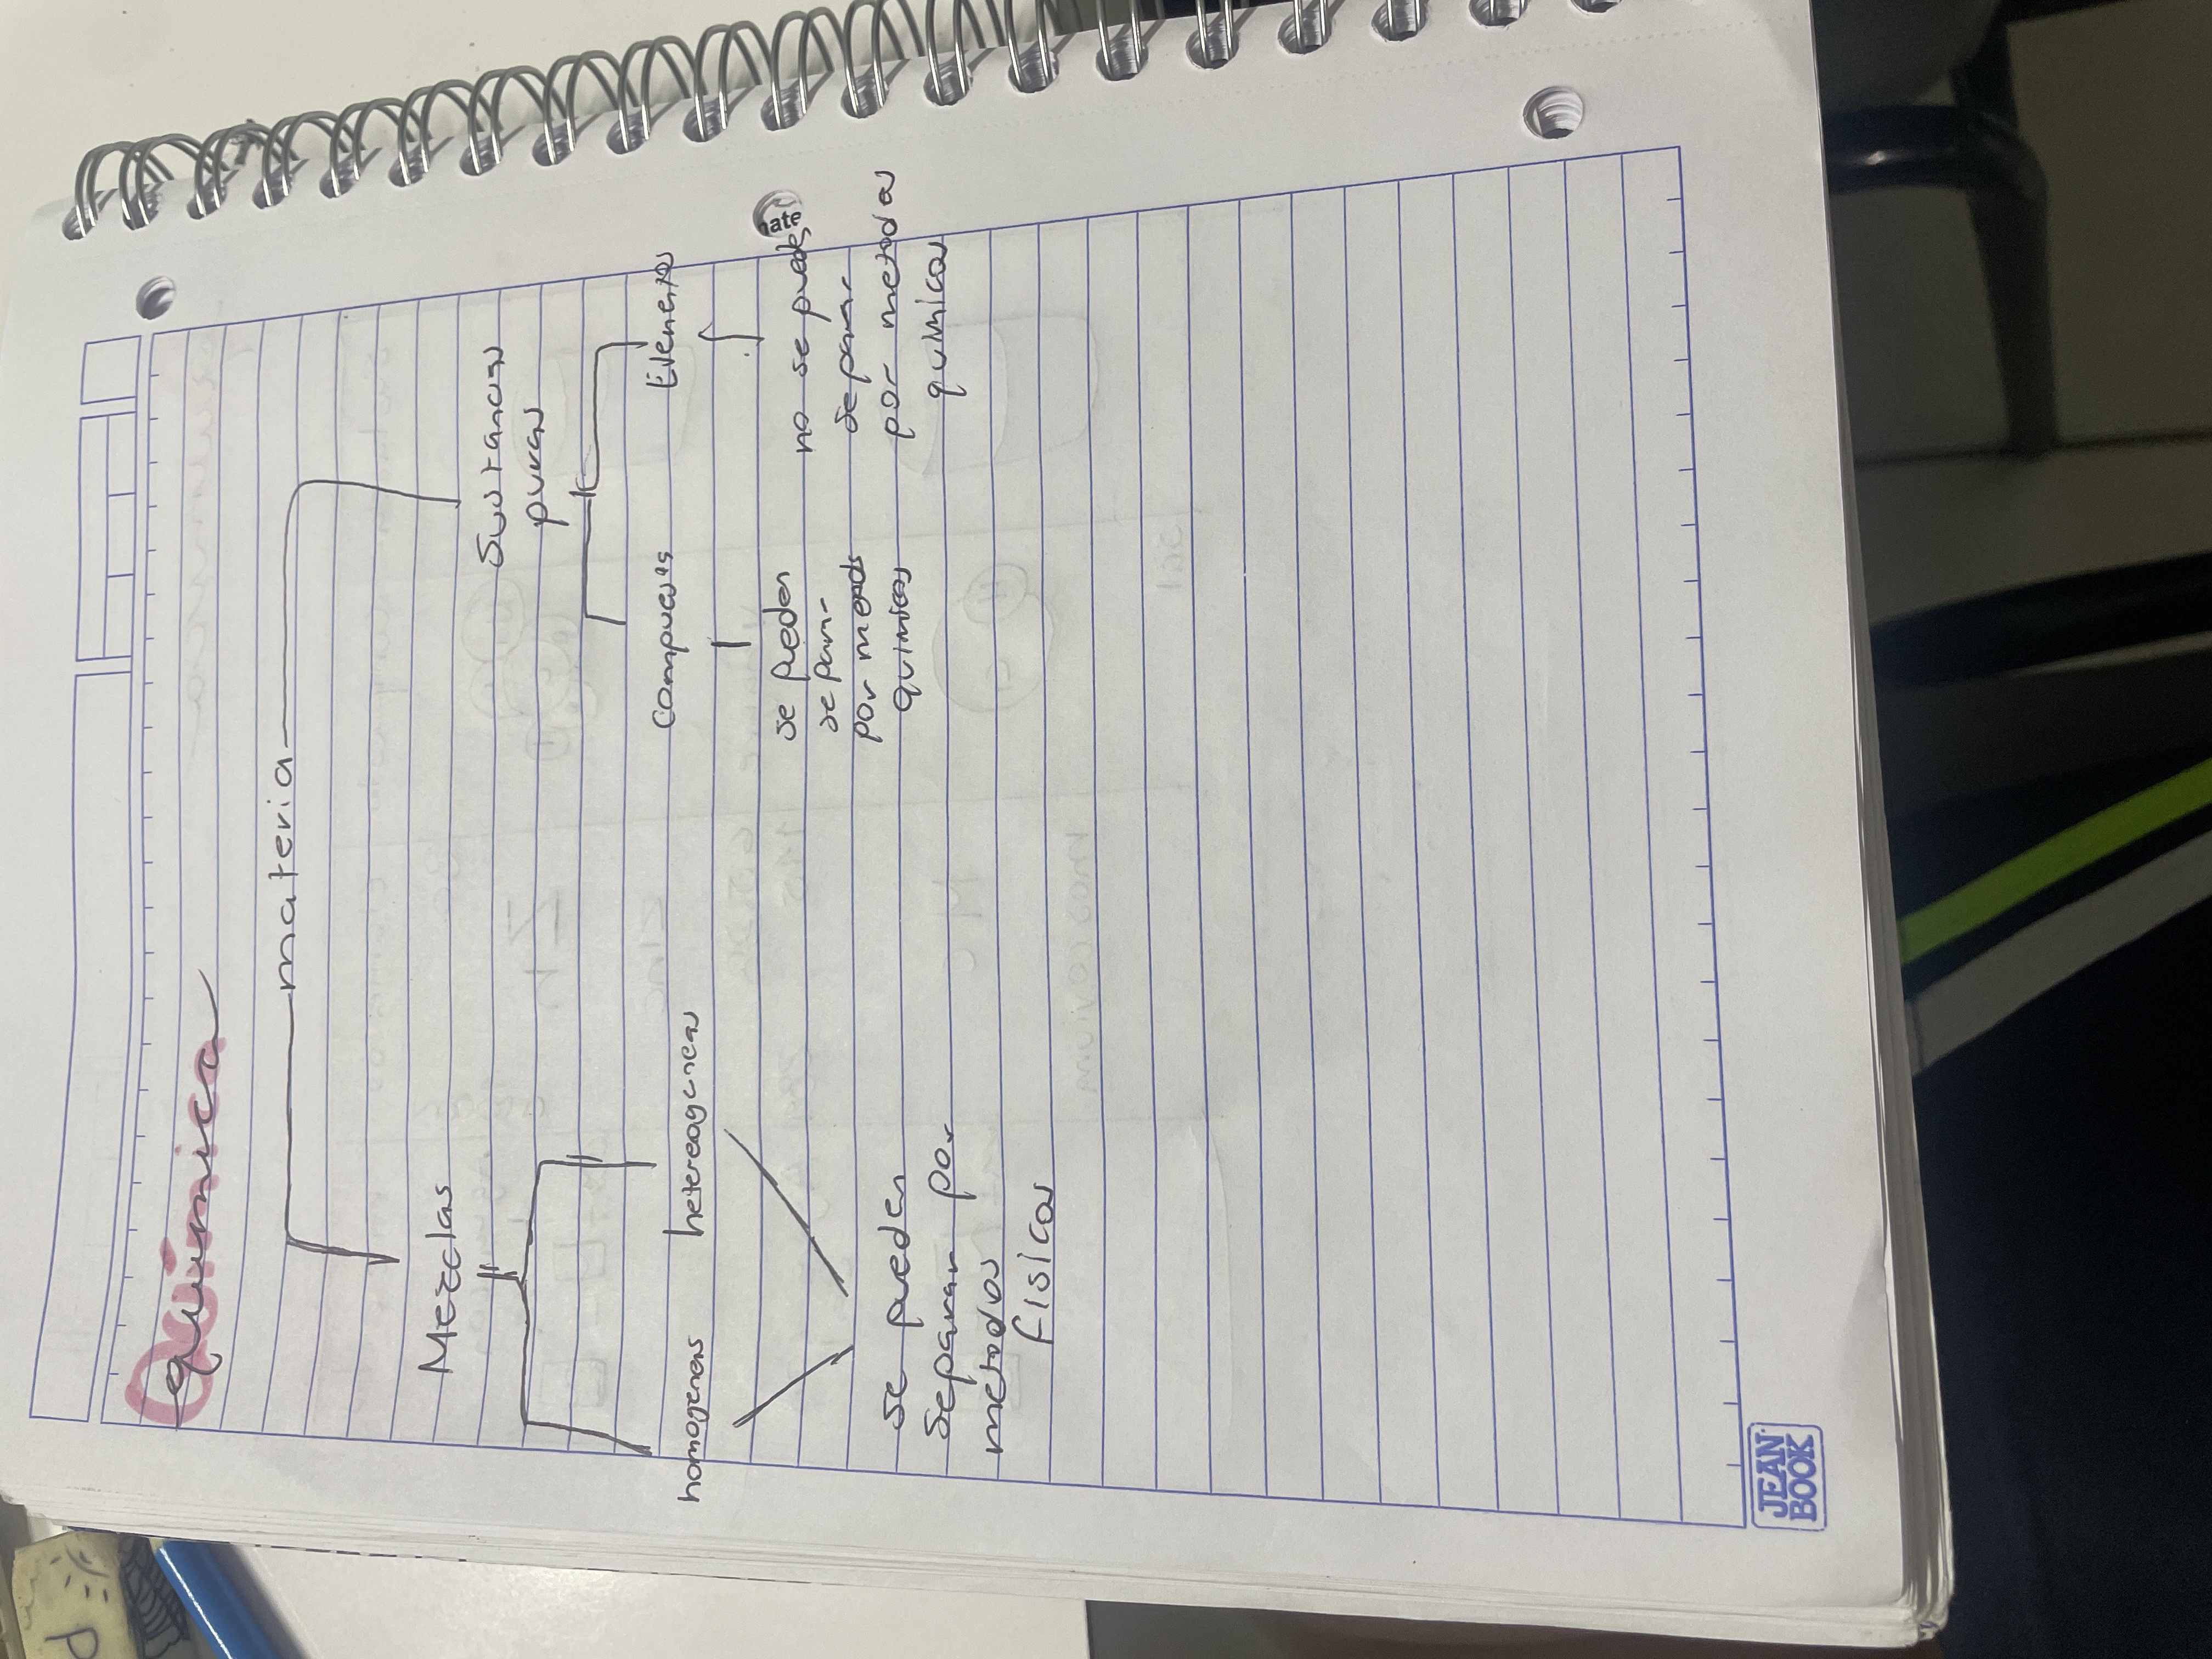 química
materia
Mezclas
Sustancias
puras
homogeneas
heterogeneas
Compuestos
Elementos
se pueden
Separar por
metodos
fisicos
se pueden
separar
por metods
quimicos
no se puede
separar
por metodos
quimicos
nate
JEAN
BOOK